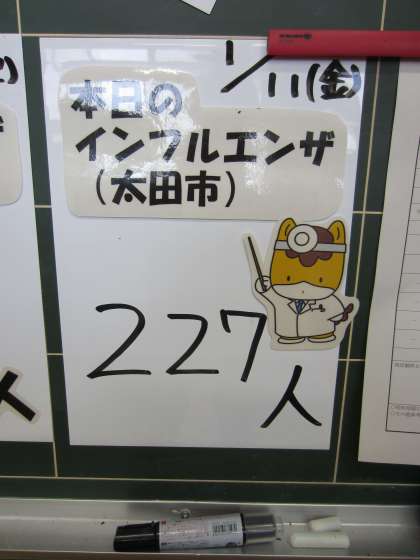 1/11(金)
本日の
インフルエンザ
(太田市)
227人